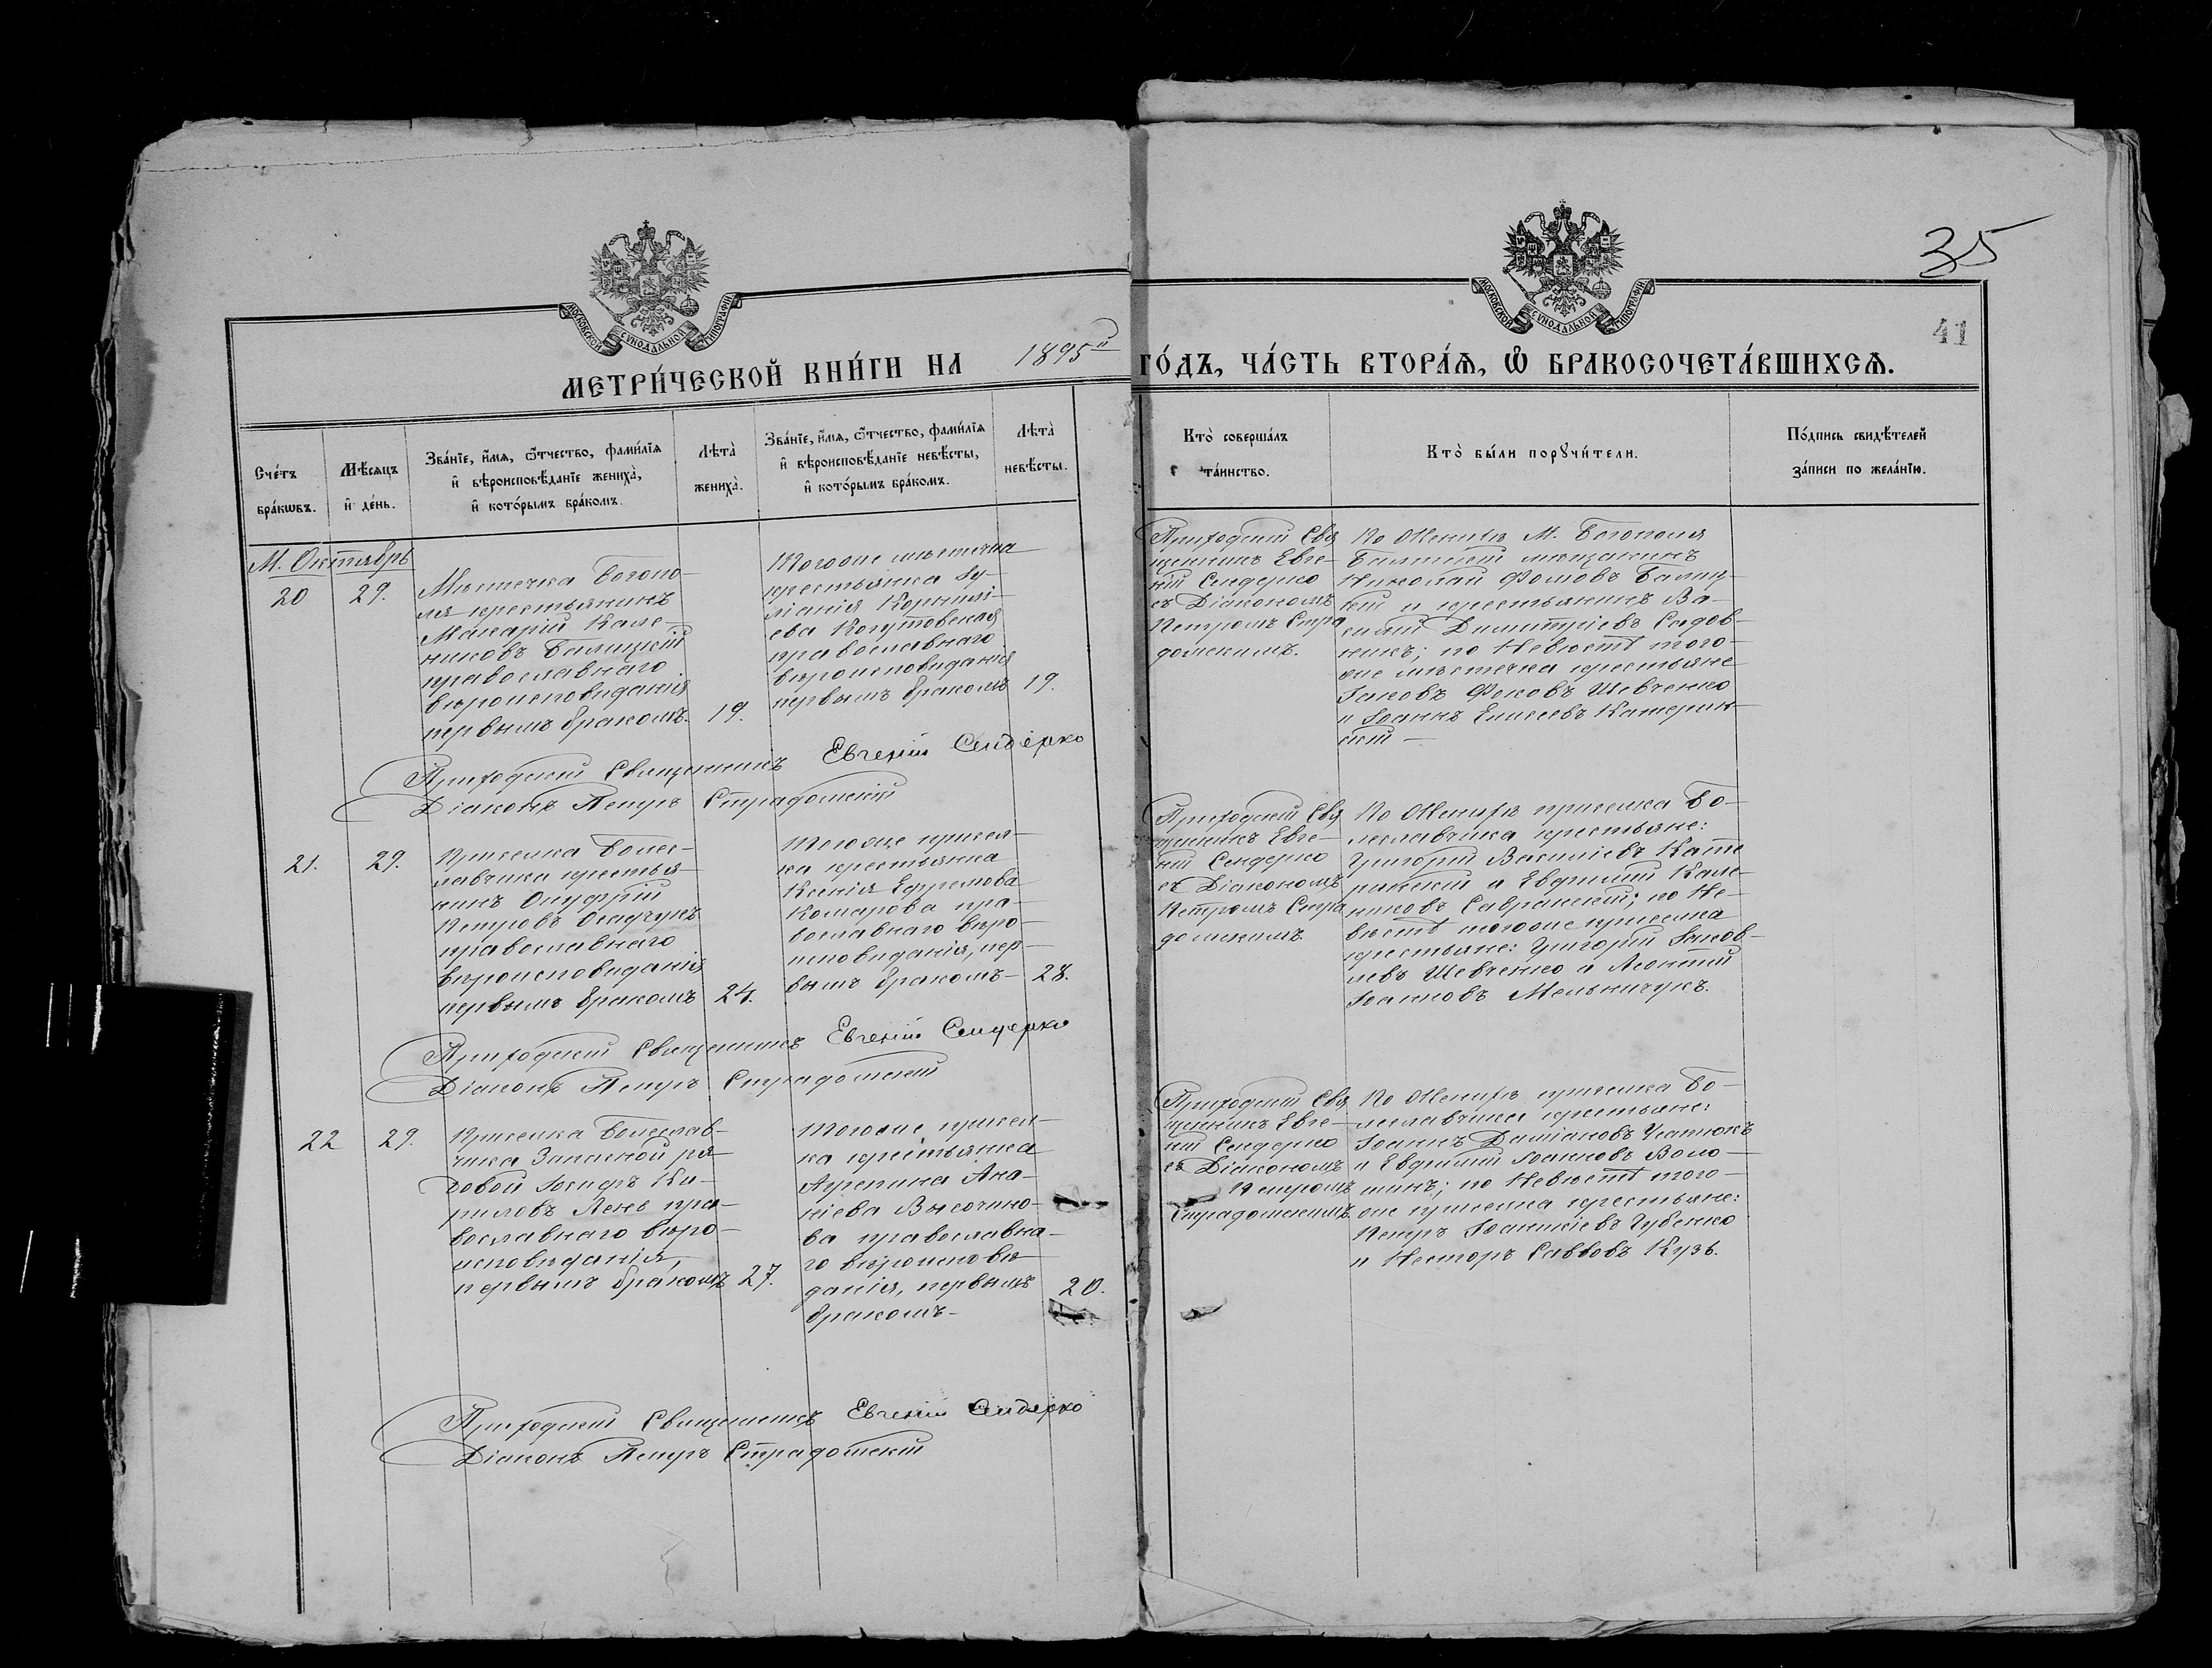 35
41
МОСКОВСКОЙ СѴНОДАЛЬНОЙ ТИПОГРАФІИ
МОСКОВСКОЙ СѴНОДАЛЬНОЙ ТИПОГРАФІИ
МЕТРИ́ЧЕСКОЙ КНИ́ГИ НА 1895й ГО́ДЪ, ЧА́СТЬ ВТОРА́Ѧ, Ѽ БРАКОСОЧЕТА́ВШИХСѦ.
Сче́тъ
бра́кѡвъ.
Мѣ́сѧцъ
и҆ де́нь.
Зва́нїе, и҆́мѧ, ѻ҆́тчество, фами́лїѧ
и҆ вѣроисповѣ́данїе жениха̀,
и҆ кото́рымъ бра́комъ.
Лѣта̀
жениха̀.
Зва́нїе, и҆́мѧ, ѻ҆́тчество, фами́лїѧ
и҆ вѣроисповѣ́данїе невѣ́сты,
и҆ кото́рымъ бра́комъ.
Лѣта̀
невѣ́сты.
Кто̀ соверша́лъ
та́инство.
Кто̀ бы́ли порꙋчи́тели.
По́дпись свидѣ́телей
за́писи по жела́нїю.
М. Октябрь
20
29.
Мѣстечка Богопо-
ля крестьянинъ
Макарій Кале-
никовъ Балицкій
православнаго
вѣроисповѣданія
первымъ бракомъ.
19.
Тогоже мѣстечка
крестьянка Іу-
ліанія Корнилі-
ева Когутовская
православнаго
вѣроисповѣданія
первымъ бракомъ
19.
Приходскій Свя
щенникъ Евге-
ній Сендерко
съ Діакономъ
Петромъ Стра
домскимъ.
По Женихѣ М. Богополя
Балтскій мѣщанинъ
Николай Фомовъ Балиц-
кій и крестьянинъ Ва-
силій Димитріевъ Садов-
никъ; по Невѣстѣ того-
же мѣстечка крестьяне
Іаковъ Фоковъ Шевченко
и Іоаннъ Елисеевъ Катерин-
скій —
Приходскій Священникъ Евгеній Сендерко
Діаконъ Петръ Страдомскій
21.
29.
Приселка Болес-
лавчика крестья-
нинъ Онуфрій
Петровъ Осадчукъ
православнаго
вѣроисповѣданія
первымъ бракомъ
24.
Тогоже присел-
ка крестьянка
Ксенія Ефремова
Комарова пра-
вославнаго вѣро-
исповѣданія, пер-
вымъ бракомъ-
28.
Приходскій Свя
щенникъ Евге-
ній Сендерко
съ Діакономъ
Петромъ Стра
домскимъ.
По Женихѣ приселка Бо-
леславчика крестьяне:
Григорій Василіевъ Кате
ринскій и Евфимій Кале-
никовъ Савранскій; по Не-
вѣстѣ тогоже приселка
крестьяне: Григорій Іаков-
левъ Шевченко и Леонтій
Іоанновъ Мельничукъ.
Приходскій Священникъ Евгеній Сендерко
Діаконъ Петръ Страдомскій
22
29.
Приселка Болеслав-
чика Запасной ря-
довой Іосифъ Ки-
риловъ Лень пра-
вославнаго вѣро-
исповѣданія,
первымъ бракомъ
27.
Тогоже присел-
ка крестьянка
Агрепина Ана-
ніева Высочино-
ва православна-
го вѣроисповѣ
данія, первымъ
бракомъ-
20.
Приходскій Свя
щенникъ Евге-
ній Сендерко
съ Діакономъ
Петромъ
Страдомскимъ.
По Женихѣ приселка Бо-
леславчика крестьяне:
Іоаннъ Даміановъ
и Евфимій Іоанновъ Воло-
шинъ; по Невѣстѣ того-
же приселка крестьяне:
Петръ Іоанніевъ Губенко
и Несторъ Саввовъ Кузь.
Приходскій Священникъ Евгеній Сендерко
Діаконъ Петръ Страдомскій